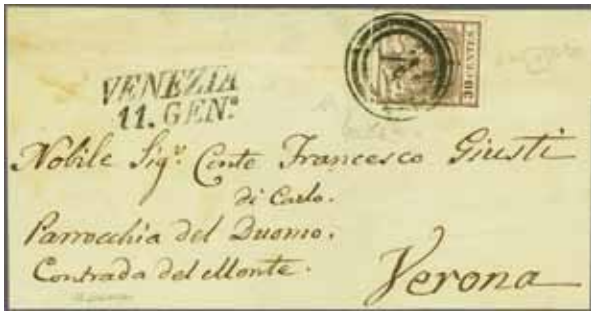 VENEZIA
11. GEN.º
30 CENTES
Nobile Sig.r Conte Francesco Giusti
di Carlo.
Parrocchia del Duomo.
Contrada del Monte.
Verona